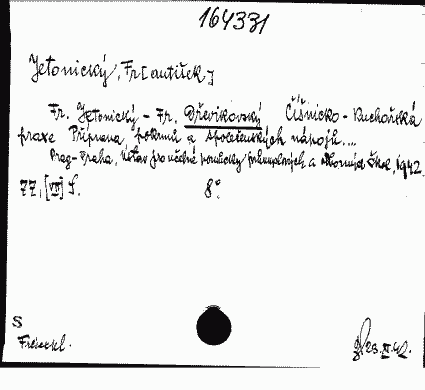 164331
Jetonický, Fr[antišek]
Fr. Jetonický - Fr. Dřevikovský Číšnicko - Kuchařská
praxe Příprava pokrmů a společenských nápojů....
Prag-Praha, Ústav pro učebné pomůcky průmyslových a odborných škol, 1942.
77, [VII] S. 8°.
S
Fr. 23.XI.42.